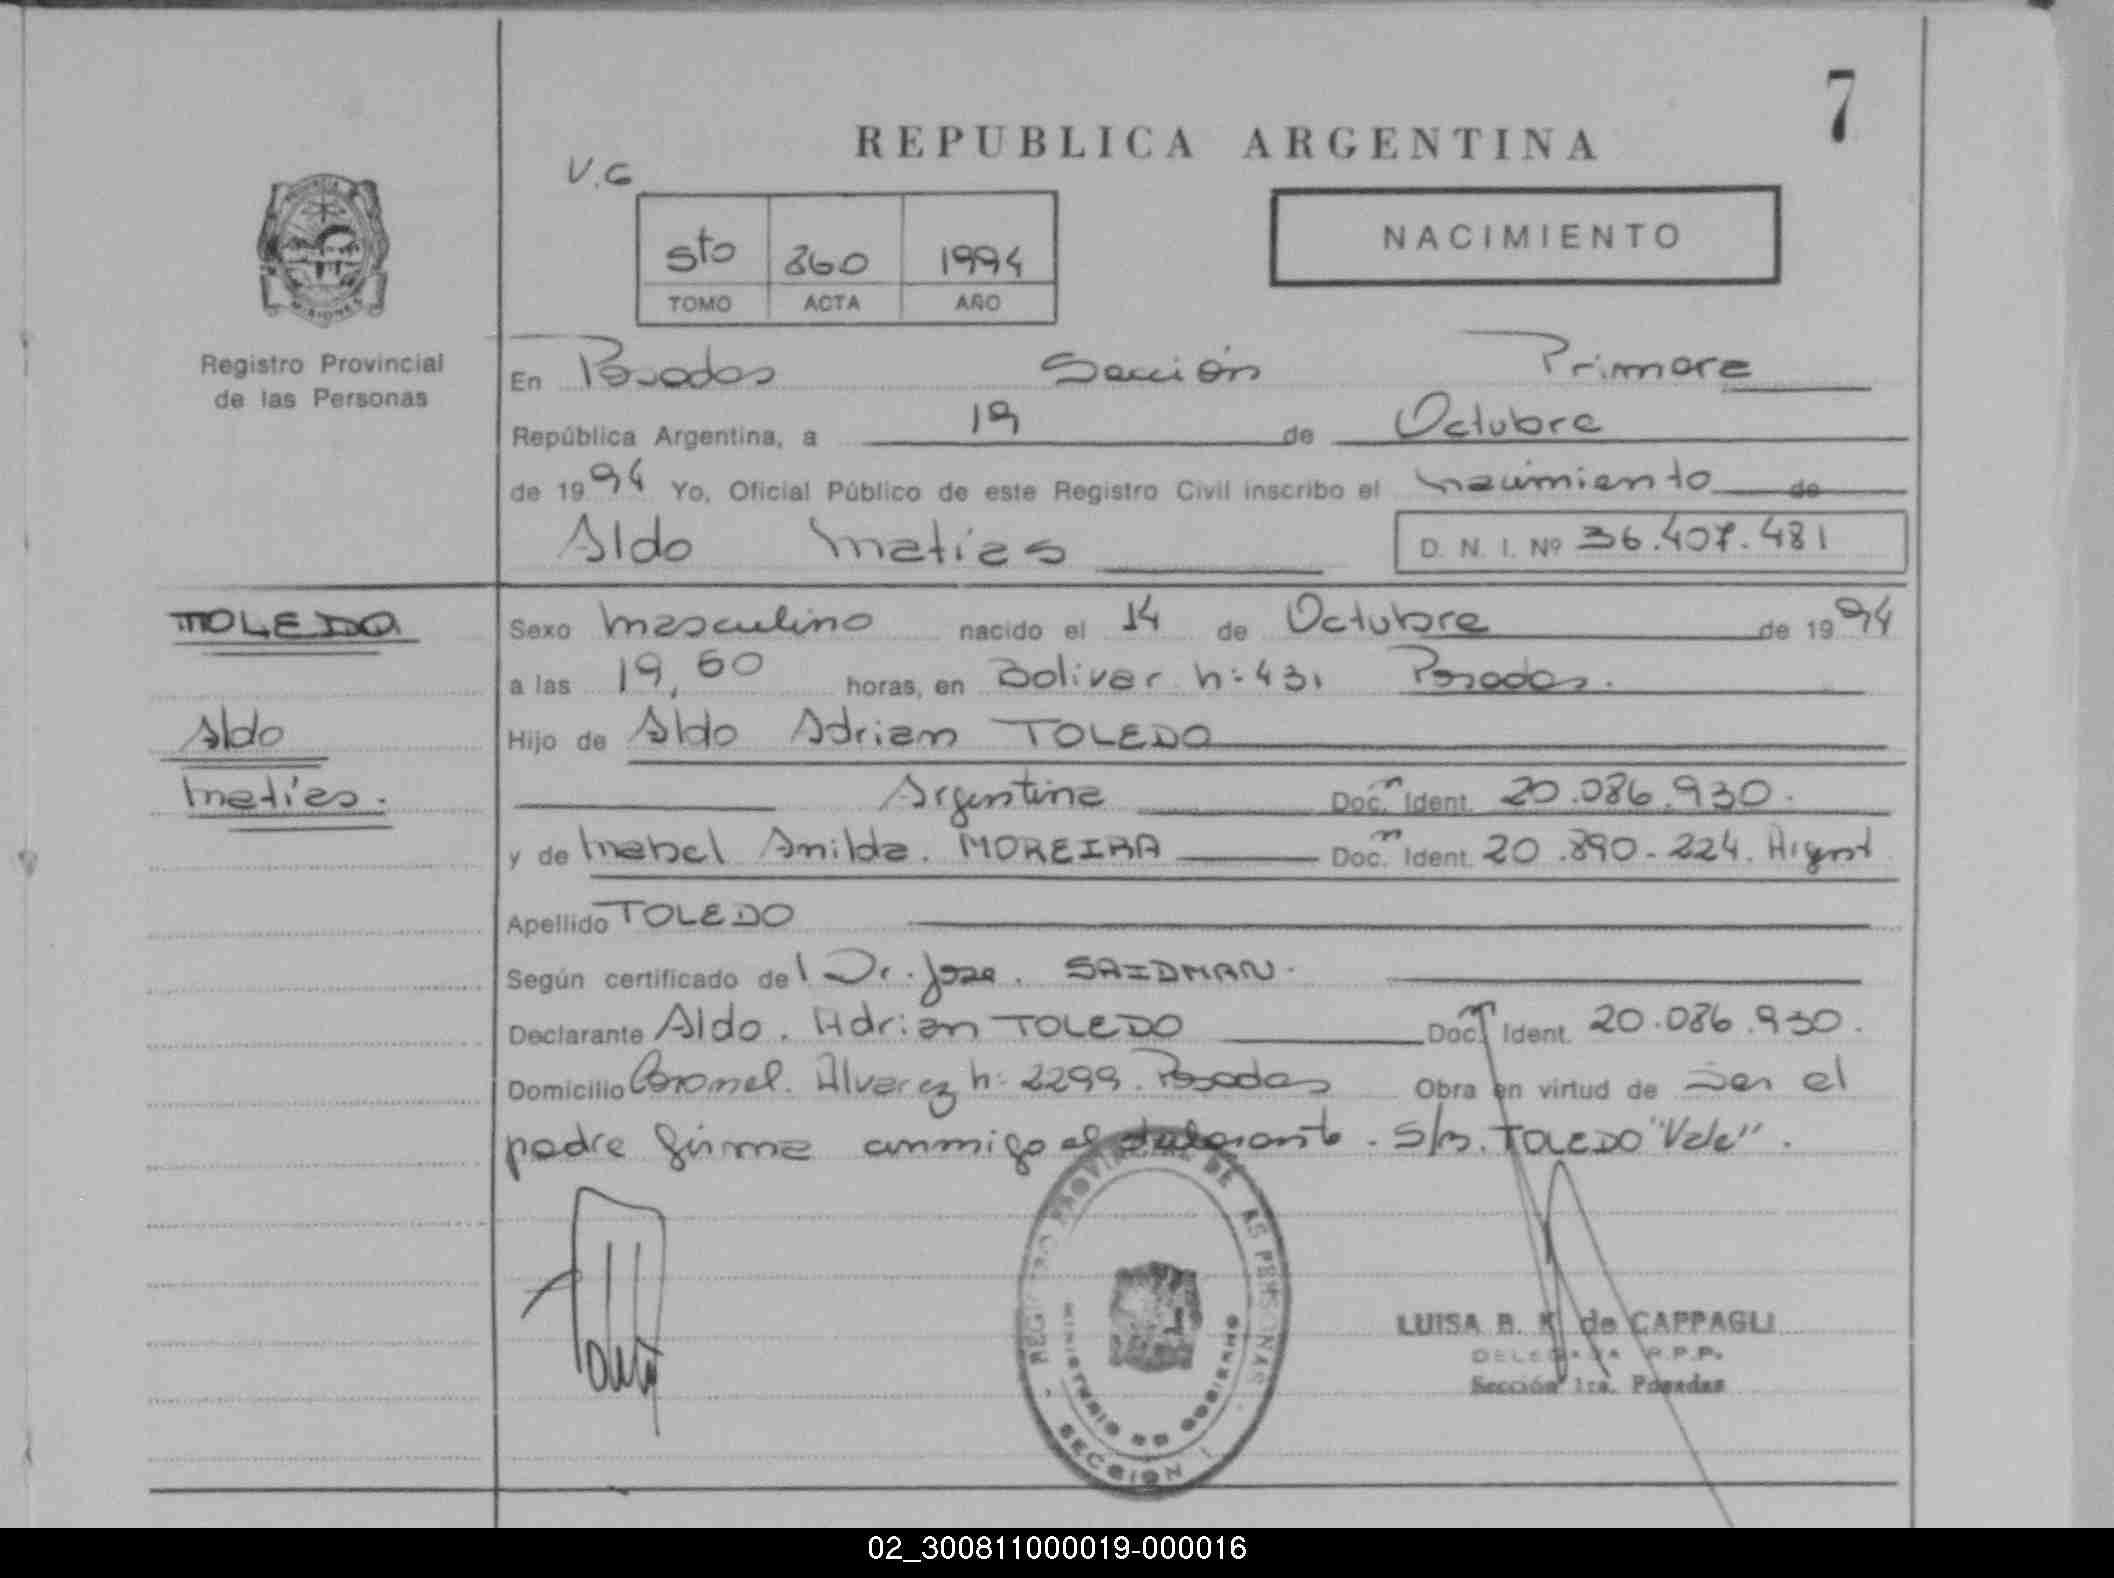 7
REPUBLICA ARGENTINA
V.G
NACIMIENTO
5to 360 1994
TOMO ACTA AÑO
Registro Provincial
de las Personas
En Posadas Sección Primera
República Argentina, a 19 de Octubre
de 1994 Yo, Oficial Público de este Registro Civil inscribo el nacimiento de
Aldo Matias D. N. I. Nº 36.407.481
TOLEDO
Aldo
Matías.
Sexo masculino nacido el 14 de Octubre de 1994
a las 19,50 horas, en Bolivar n: 431 Posadas.
Hijo de Aldo Adrian TOLEDO
Argentina Doc. Ident. 20.086.930.
y de Mabel Anilda. MOREIRA Doc. Ident. 20.890.224. Argent
Apellido TOLEDO
Según certificado del Dr. Jose. SAIDMAN.
Declarante Aldo. Adrian TOLEDO Doc. Ident. 20.086.930.
Domicilio Coronel. Alvarez n: 2299. Posadas Obra en virtud de ser el
padre firma conmigo el declarante. S/b. TOLEDO "Vale".
REGISTRO PROVINCIAL DE LAS PERSONAS
MINISTERIO DE GOBIERNO
SECCION 1
LUISA B. K. de CAPPAGLI
DELEGADA R.P.P.
Sección 1ra. Posadas
02_300811000019-000016